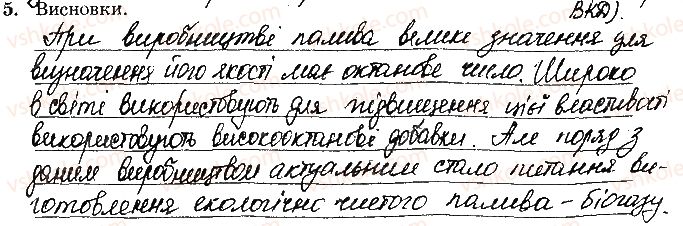 5. Висновки. ВКД).
При виробництві палива велике значення для
визначення його якості має октанове число. Широко
в світі використовують для підвищення цієї властивості
використовують високооктанові добавки. Але поряд з
даним виробництвом актуальним стало питання ви-
готовлення екологічно чистого палива – біогазу.